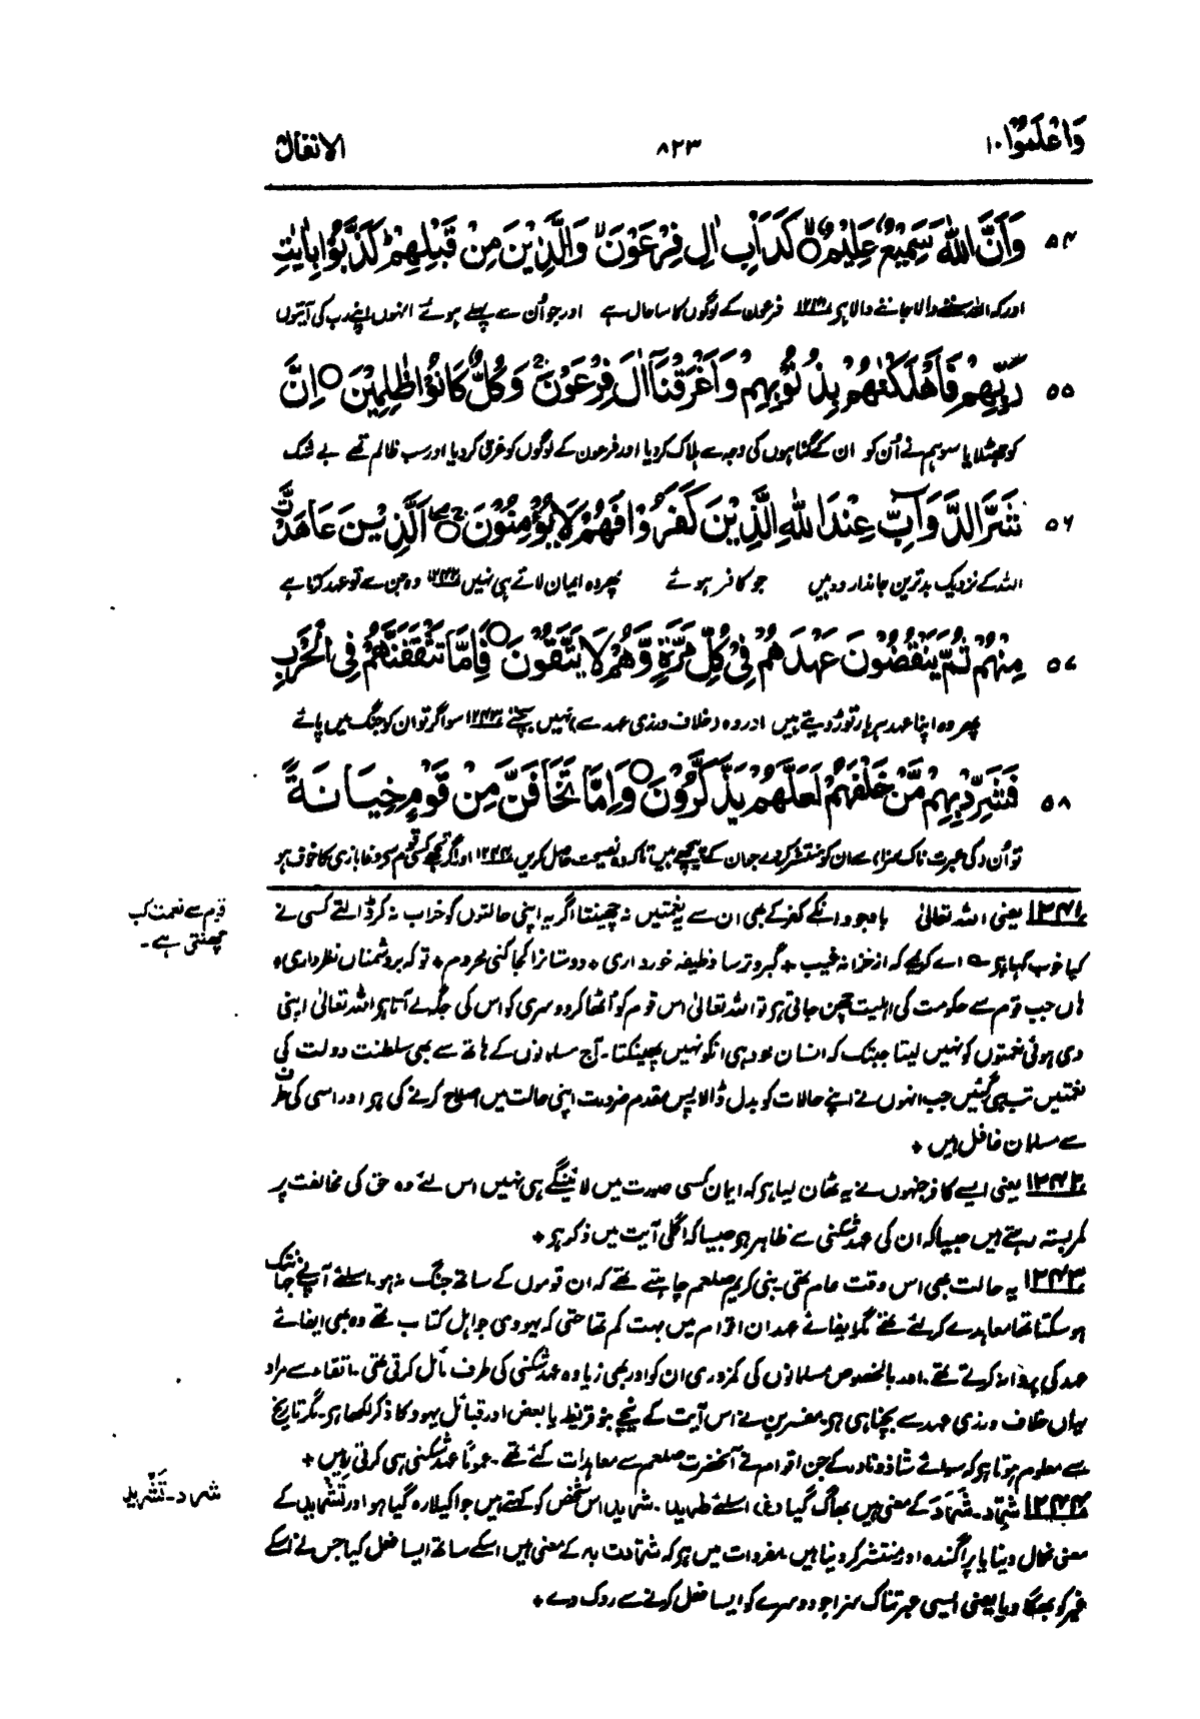 وَاعْلَمُوْا ۱۰
۸۲۳
الانفال
وَاَنَّ اللّٰهَ سَمِيْعٌ عَلِيْمٌ ۙ كَدَاْبِ اٰلِ فِرْعَوْنَ ۙ وَالَّذِيْنَ مِنْ قَبْلِهِمْ ؕ كَذَّبُوْا بِاٰيٰتِ
۵۴
اور کہ اللہ سننے والا جاننے والا ہو ۱۲۴۱ فرعون کے لوگوں کا سا حال ہے اور جو اُن سے پہلے ہوئے انہوں اپنے رب کی آیتوں
رَبِّهِمْ فَاَهْلَكْنٰهُمْ بِذُنُوْبِهِمْ وَاَغْرَقْنَاۤ اٰلَ فِرْعَوْنَ ۚ وَكُلٌّ كَانُوْا ظٰلِمِيْنَ ○ اِنَّ
۵۵
کو جھٹلایا سو ہم نے اُن کو ان کے گناہوں کی وجہ سے ہلاک کر دیا اور فرعون کے لوگوں کو غرق کر دیا اور سب ظالم تھے بے شک
شَرَّ الدَّوَآبِّ عِنْدَ اللّٰهِ الَّذِيْنَ كَفَرُوْا فَهُمْ لَا يُؤْمِنُوْنَ ○ اَلَّذِيْنَ عَاهَدْتَّ
۵۶
اللہ کے نزدیک بدترین جاندار وہ ہیں جو کافر ہوئے پھر وہ ایمان لاتے ہی نہیں ۱۲۴۲ وہ جن سے تو عہد کرتا ہے
مِنْهُمْ ثُمَّ يَنْقُضُوْنَ عَهْدَهُمْ فِيْ كُلِّ مَرَّةٍ وَّهُمْ لَا يَتَّقُوْنَ ○ فَاِمَّا تَثْقَفَنَّهُمْ فِي الْحَرْبِ
۵۷
پھر وہ اپنا عہد ہر بار توڑ دیتے ہیں اور وہ (خلاف ورزی عہد سے) نہیں بچتے ۱۲۴۳ سو اگر تو ان کو جنگ میں پائے
فَشَرِّدْ بِهِمْ مَّنْ خَلْفَهُمْ لَعَلَّهُمْ يَذَّكَّرُوْنَ ○ وَاِمَّا تَخَافَنَّ مِنْ قَوْمٍ خِيَانَةً
۵۸
تو اُن (کی عبرت ناک سزا) سے ان کو منتشر کر دے جو ان کے پیچھے ہیں تاکہ وہ نصیحت حاصل کریں ۱۲۴۴ اور اگر تجھے کسی قوم سے دغا بازی کا خوف ہو
۱۲۴۱ یعنی اللہ تعالیٰ باوجود انکے کفر کے بھی ان سے یہ نعمتیں نہ چھینتا اگر یہ اپنی حالتوں کو خراب نہ کر ڈالتے کسی نے
قوم سے نعمت کب
چھنتی ہے۔
کیا خوب کہا ہو ؎ اے کریمے کہ از خزانہ غیب ٭ گبر و ترسا وظیفہ خور داری ٭ دوستانرا کجا کنی محروم ٭ تو کہ بر دشمناں نظر داری ٭
ہاں جب قوم سے حکومت کی اہلیت چھن جاتی ہو تو اللہ تعالیٰ اس قوم کو اُٹھا کر دوسری کو اس کی جگہ لے آتا ہو اللہ تعالیٰ اپنی
دی ہوئی نعمتوں کو نہیں لیتا جبتک کہ انسان خود ہی انکو نہیں پھینکتا۔ آج مسلمانوں کے ہاتھ سے بھی سلطنت دولت کی
نعمتیں تب ہی گئیں جب انہوں نے اپنے حالات کو بدل ڈالا پس مقدم ضرورت اپنی حالت میں اصلاح کرنے کی ہو اور اسی کی طرف
سے مسلمان غافل ہیں ٭
۱۲۴۲ یعنی ایسے کافر جنہوں نے یہ ٹھان لیا ہو کہ ایمان کسی صورت میں لائینگے ہی نہیں اس لئے وہ حق کی مخالفت پر
کمربستہ رہتے ہیں جیسا کہ ان کی عہد شکنی سے ظاہر ہو جیسا کہ اگلی آیت میں ذکر ہو ٭
۱۲۴۳ یہ حالت بھی اس وقت عام تھی۔ نبی کریم صلعم چاہتے تھے کہ ان قوموں کے ساتھ جنگ نہ ہو۔ اسلئے آپنے جہانتک
ہو سکتا تھا معاہدے کر لئے تھے مگر ایفائے عہد ان اقوام میں بہت کم تھا حتی کہ یہودی جو اہل کتاب تھے وہ بھی ایفائے
عہد کی پروا نہ کرتے تھے۔ اور بالخصوص مسلمانوں کی کمزوری ان کو اور بھی زیادہ عہد شکنی کی طرف مائل کرتی تھی۔ اتقاء سے مراد
یہاں خلاف ورزی عہد سے بچنا ہی ہو۔ مفسرین نے اس آیت کے نیچے بنو قریظہ یا بعض اور قبائل یہود کا ذکر لکھا ہو۔ مگر تاریخ
سے معلوم ہوتا ہو کہ سوائے شاذ و نادر کے جن اقوام نے آنحضرت صلعم سے معاہدات کئے تھے۔ عموماً عہد شکنی ہی کرتی رہیں ٭
۱۲۴۴ شَرِّد۔ شَرَدَ کے معنی ہیں بھاگ گیا اسلئے طرید۔ شرید اس شخص کو کہتے ہیں جو اکیلا رہ گیا ہو اور تشرید کے
شرد۔ تَشْرِید
معنی نکال دینا یا پراگندہ اور منتشر کر دینا ہیں۔ مفردات میں ہو کہ شرّدت بہ کے معنی ہیں اسکے ساتھ ایسا فعل کیا جس نے اسکے
غیر کو بھگا دیا یعنی ایسی عبرتناک سزا جو دوسرے کو ایسا فعل کرنے سے روک دے ٭